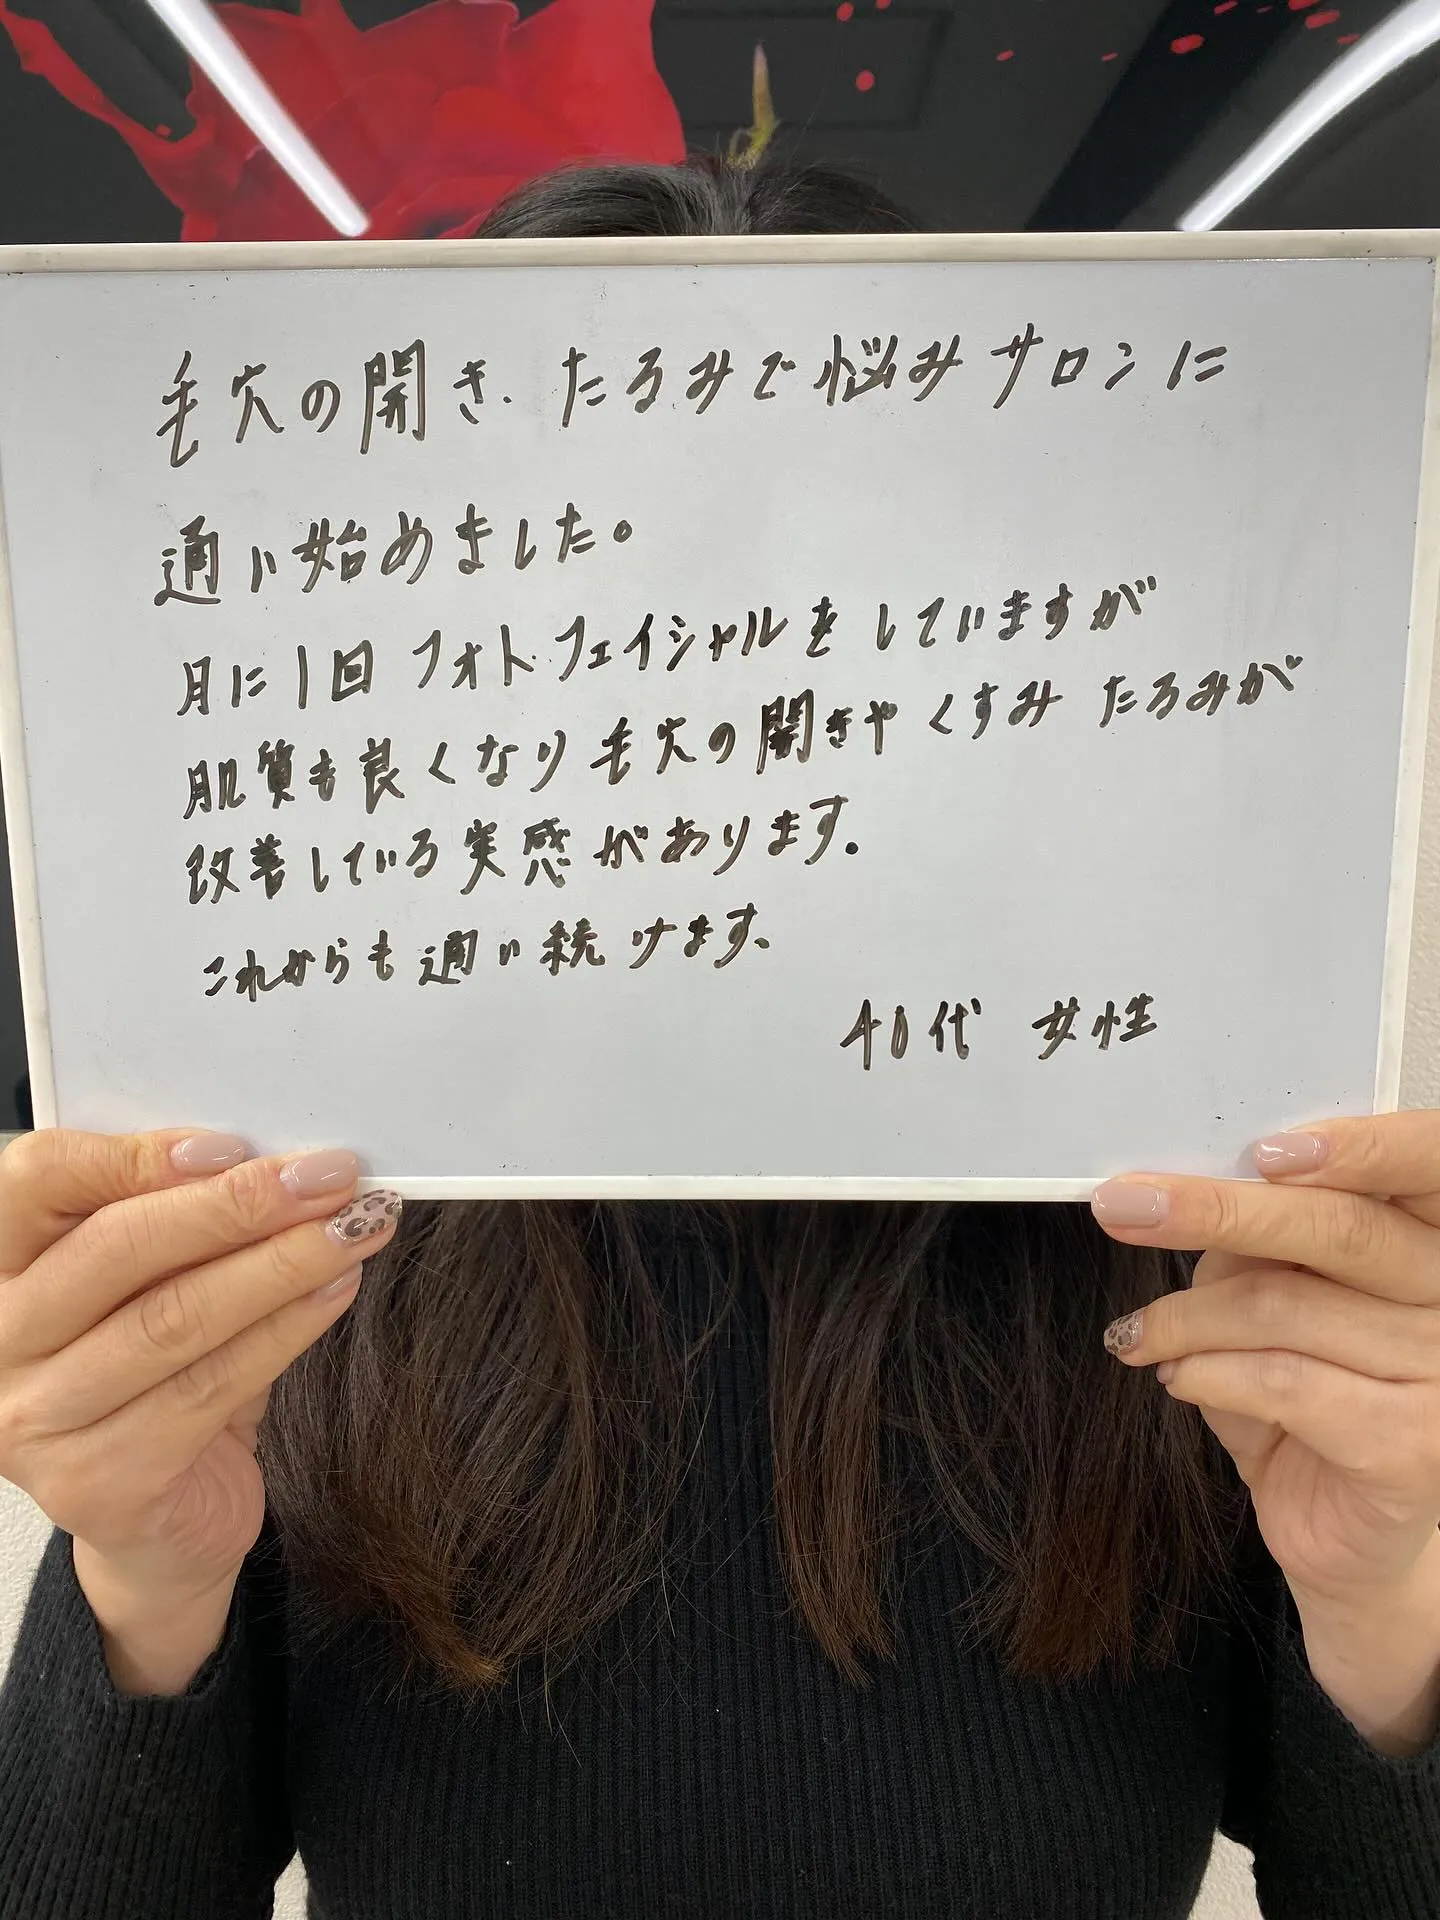 毛穴の開き、たるみで悩みサロンに
通い始めました。
月に1回フォトフェイシャルをしていますが
肌質も良くなり毛穴の開きやくすみ たるみが
改善している実感があります。
これからも通い続けます、
40代 女性